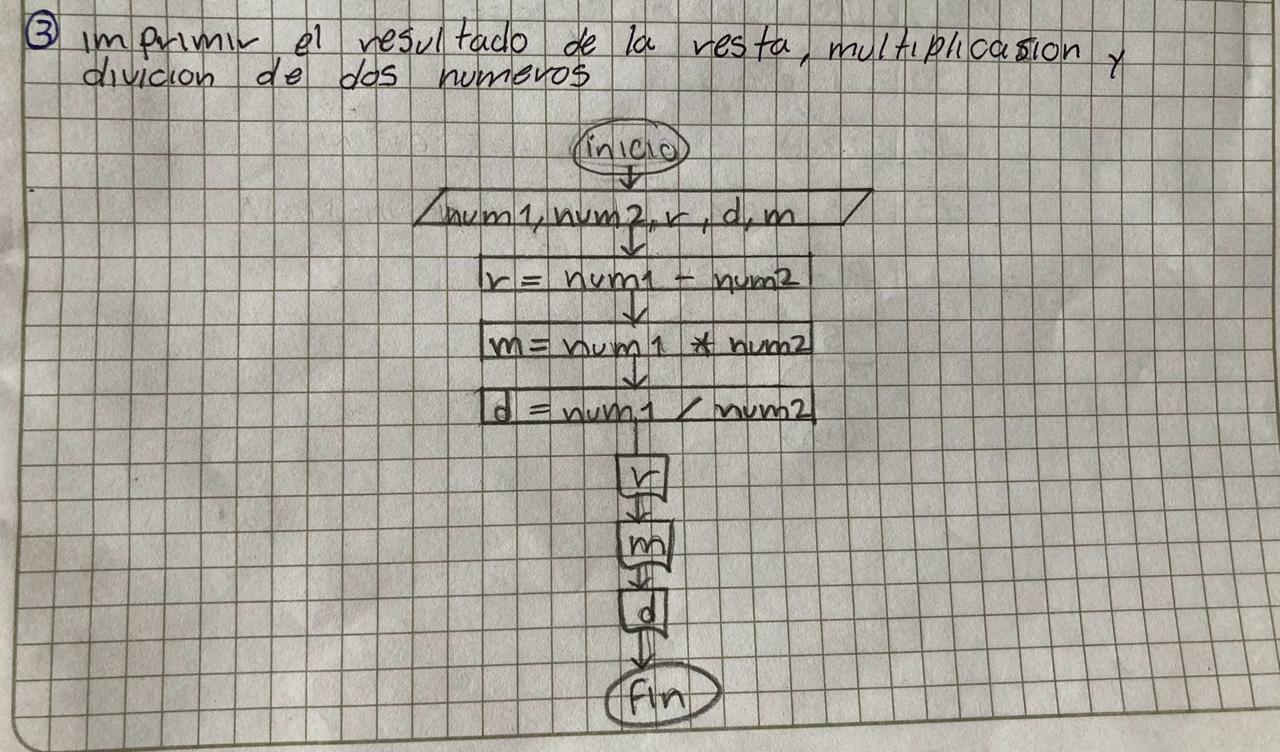 3 imprimir el resultado de la resta, multiplicasion y
divicion de dos numeros
inicio
num1, num2, r, d, m
r = num1 - num2
m = num1 * num2
d = num1 / num2
r
m
d
Fin